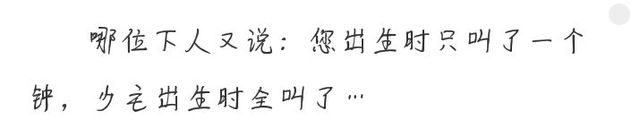 哪位下人又说：您出生时只叫了一个
钟，少宅出生时全叫了…